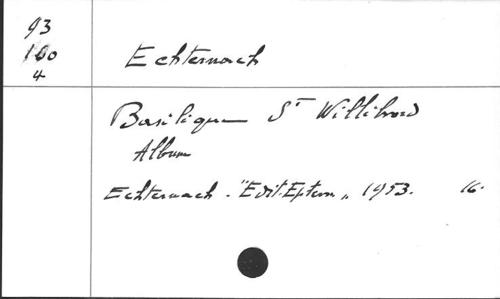 93
100
4
Echternach
Basilique St Willibrord
Album
Echternach - "Edit. Eptern„ 1953. 16.